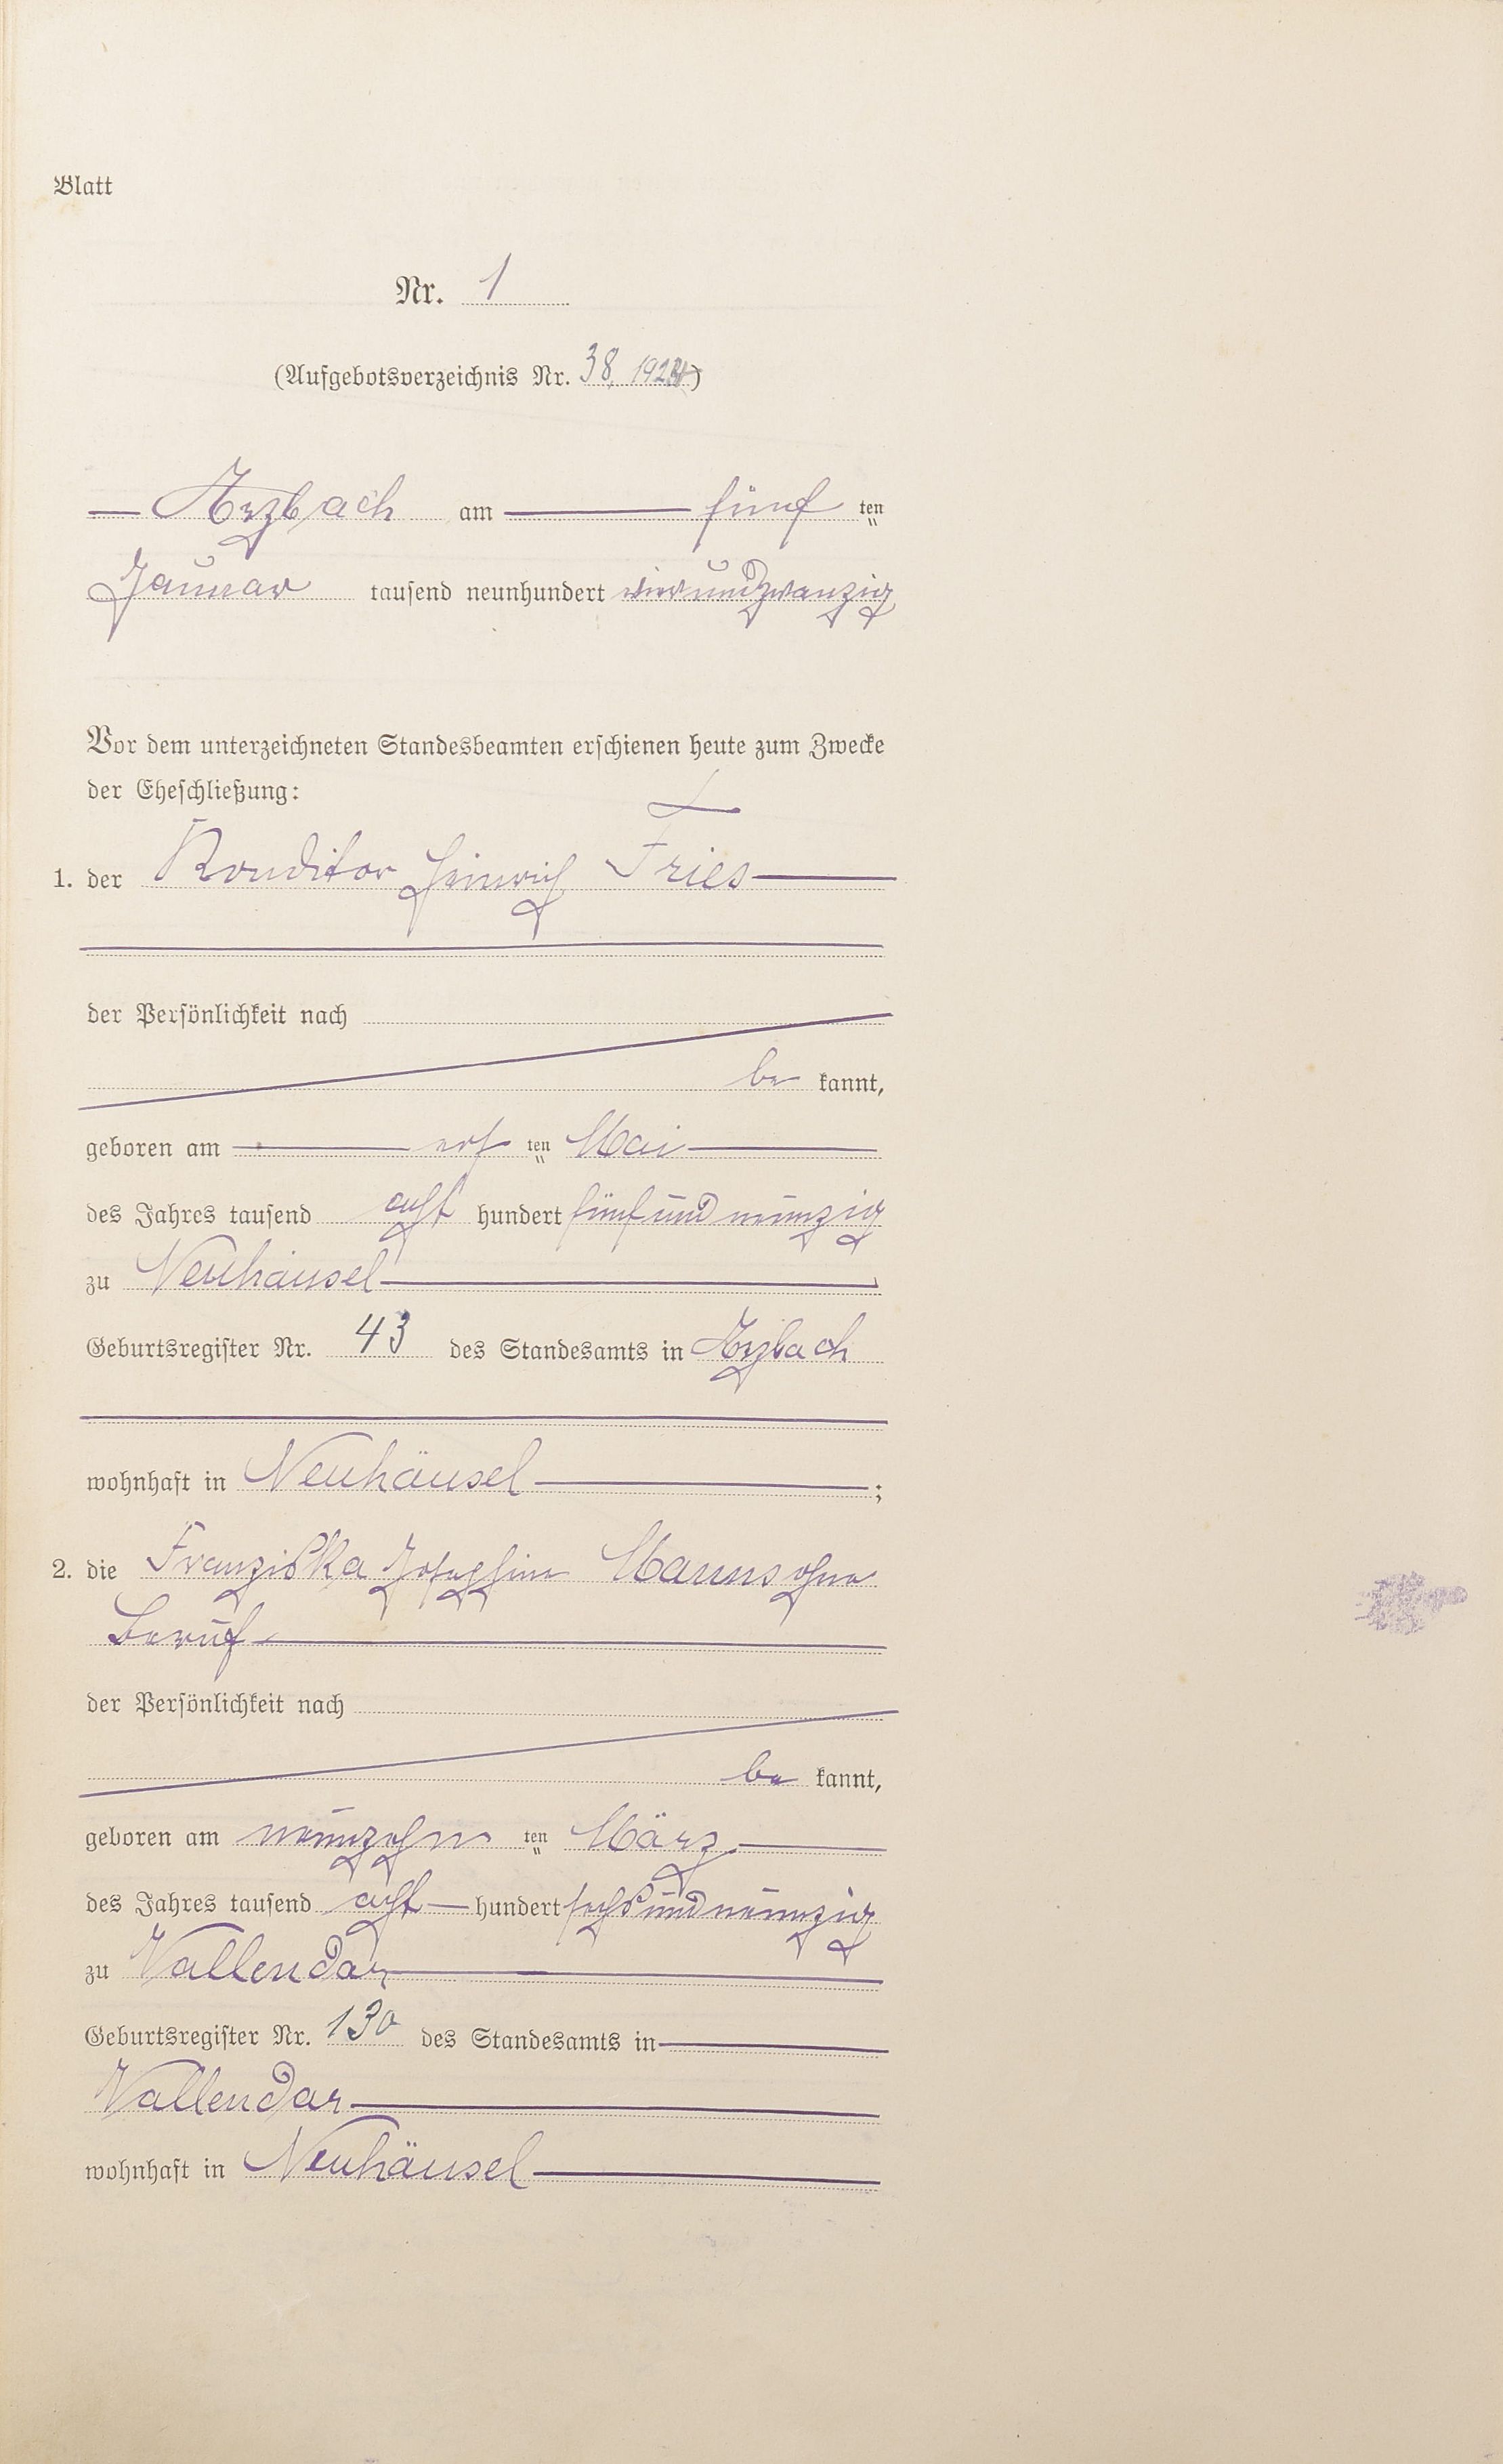 Blatt
Nr. 1
(Aufgebotsverzeichnis Nr. 38, 1923)
Arzbach am fünf ten
Januar tausend neunhundert vierundzwanzig
Vor dem unterzeichneten Standesbeamten erschienen heute zum Zwecke
der Eheschließung:
1. der Konditor Heinrich Fries
der Persönlichkeit nach
be kannt,
geboren am ten Mai
des Jahres tausend acht hundert fünfundneunzig
zu Neuhäusel
Geburtsregister Nr. 43 des Standesamts in Arzbach
wohnhaft in Neuhäusel ;
2. die Franziska Josephine Manns ohne
Beruf
der Persönlichkeit nach
be kannt,
geboren am neunzehn ten März
des Jahres tausend acht hundert sechsundneunzig
zu Vallendar
Geburtsregister Nr. 130 des Standesamts in
Vallendar
wohnhaft in Neuhäusel